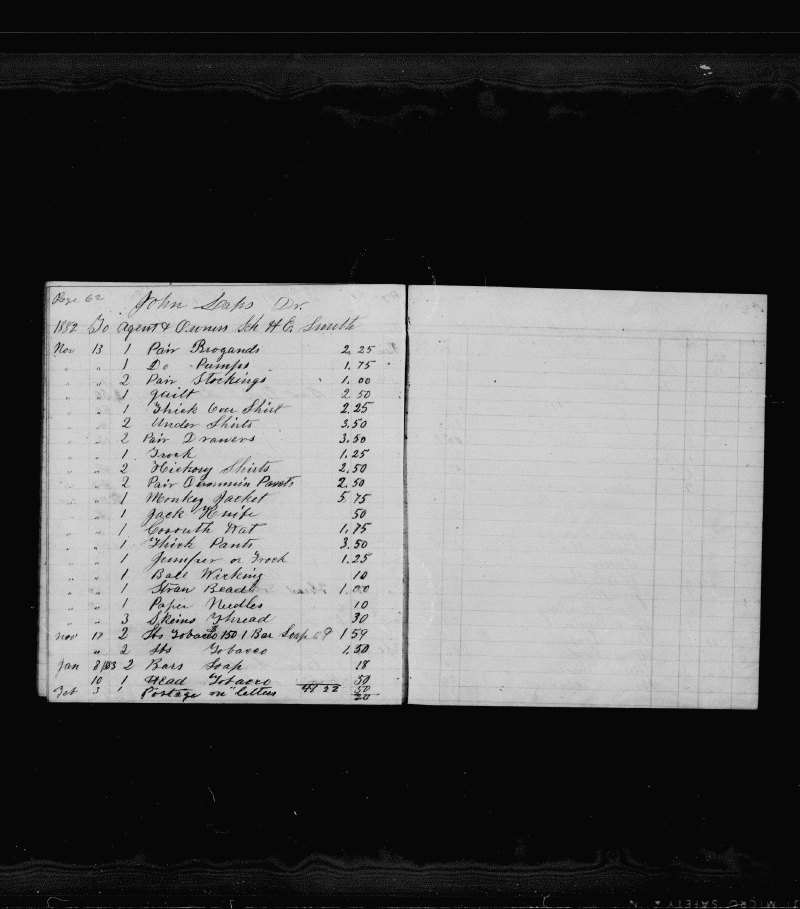 Page 62 John Dr.
1882 To Agent & Owners Sch H. E. Smith
Nov 13 1 Pair Brogands 2.25
" " 1 Do Pumps 1.75
" " 2 Pair Stockings 1.00
" " 1 quilt 2 50
" " 1 Thick Over Shirt 2.25
" " 2 Under Shirts 3.50
" " 2 Pair Drawers 3.50
" " 1 Frock 1.25
" " 2 Hickory Shirts 2.50
" " 2 Pair Pants 2.50
" " 1 Monkey Jacket 5 75
" " 1 Jack Knife 50
" " 1 Hat 1.75
" " 1 Thick Pants 3.50
" " 1 Jumper or Frock 1.25
" " 1 Ball Wicking 10
" " 1 1.00
" " 1 Paper Needles 10
" " 3 Skeins Thread 30
nov 17 2 lbs Tobacco 150 1 Bar Soap 09 1 59
" 2 lbs Tobacco 1.50
Jan 8 1883 2 Bars Soap 18
10 1 Head Tobacco 50
Feb 3 1 Postage on letters 50
20